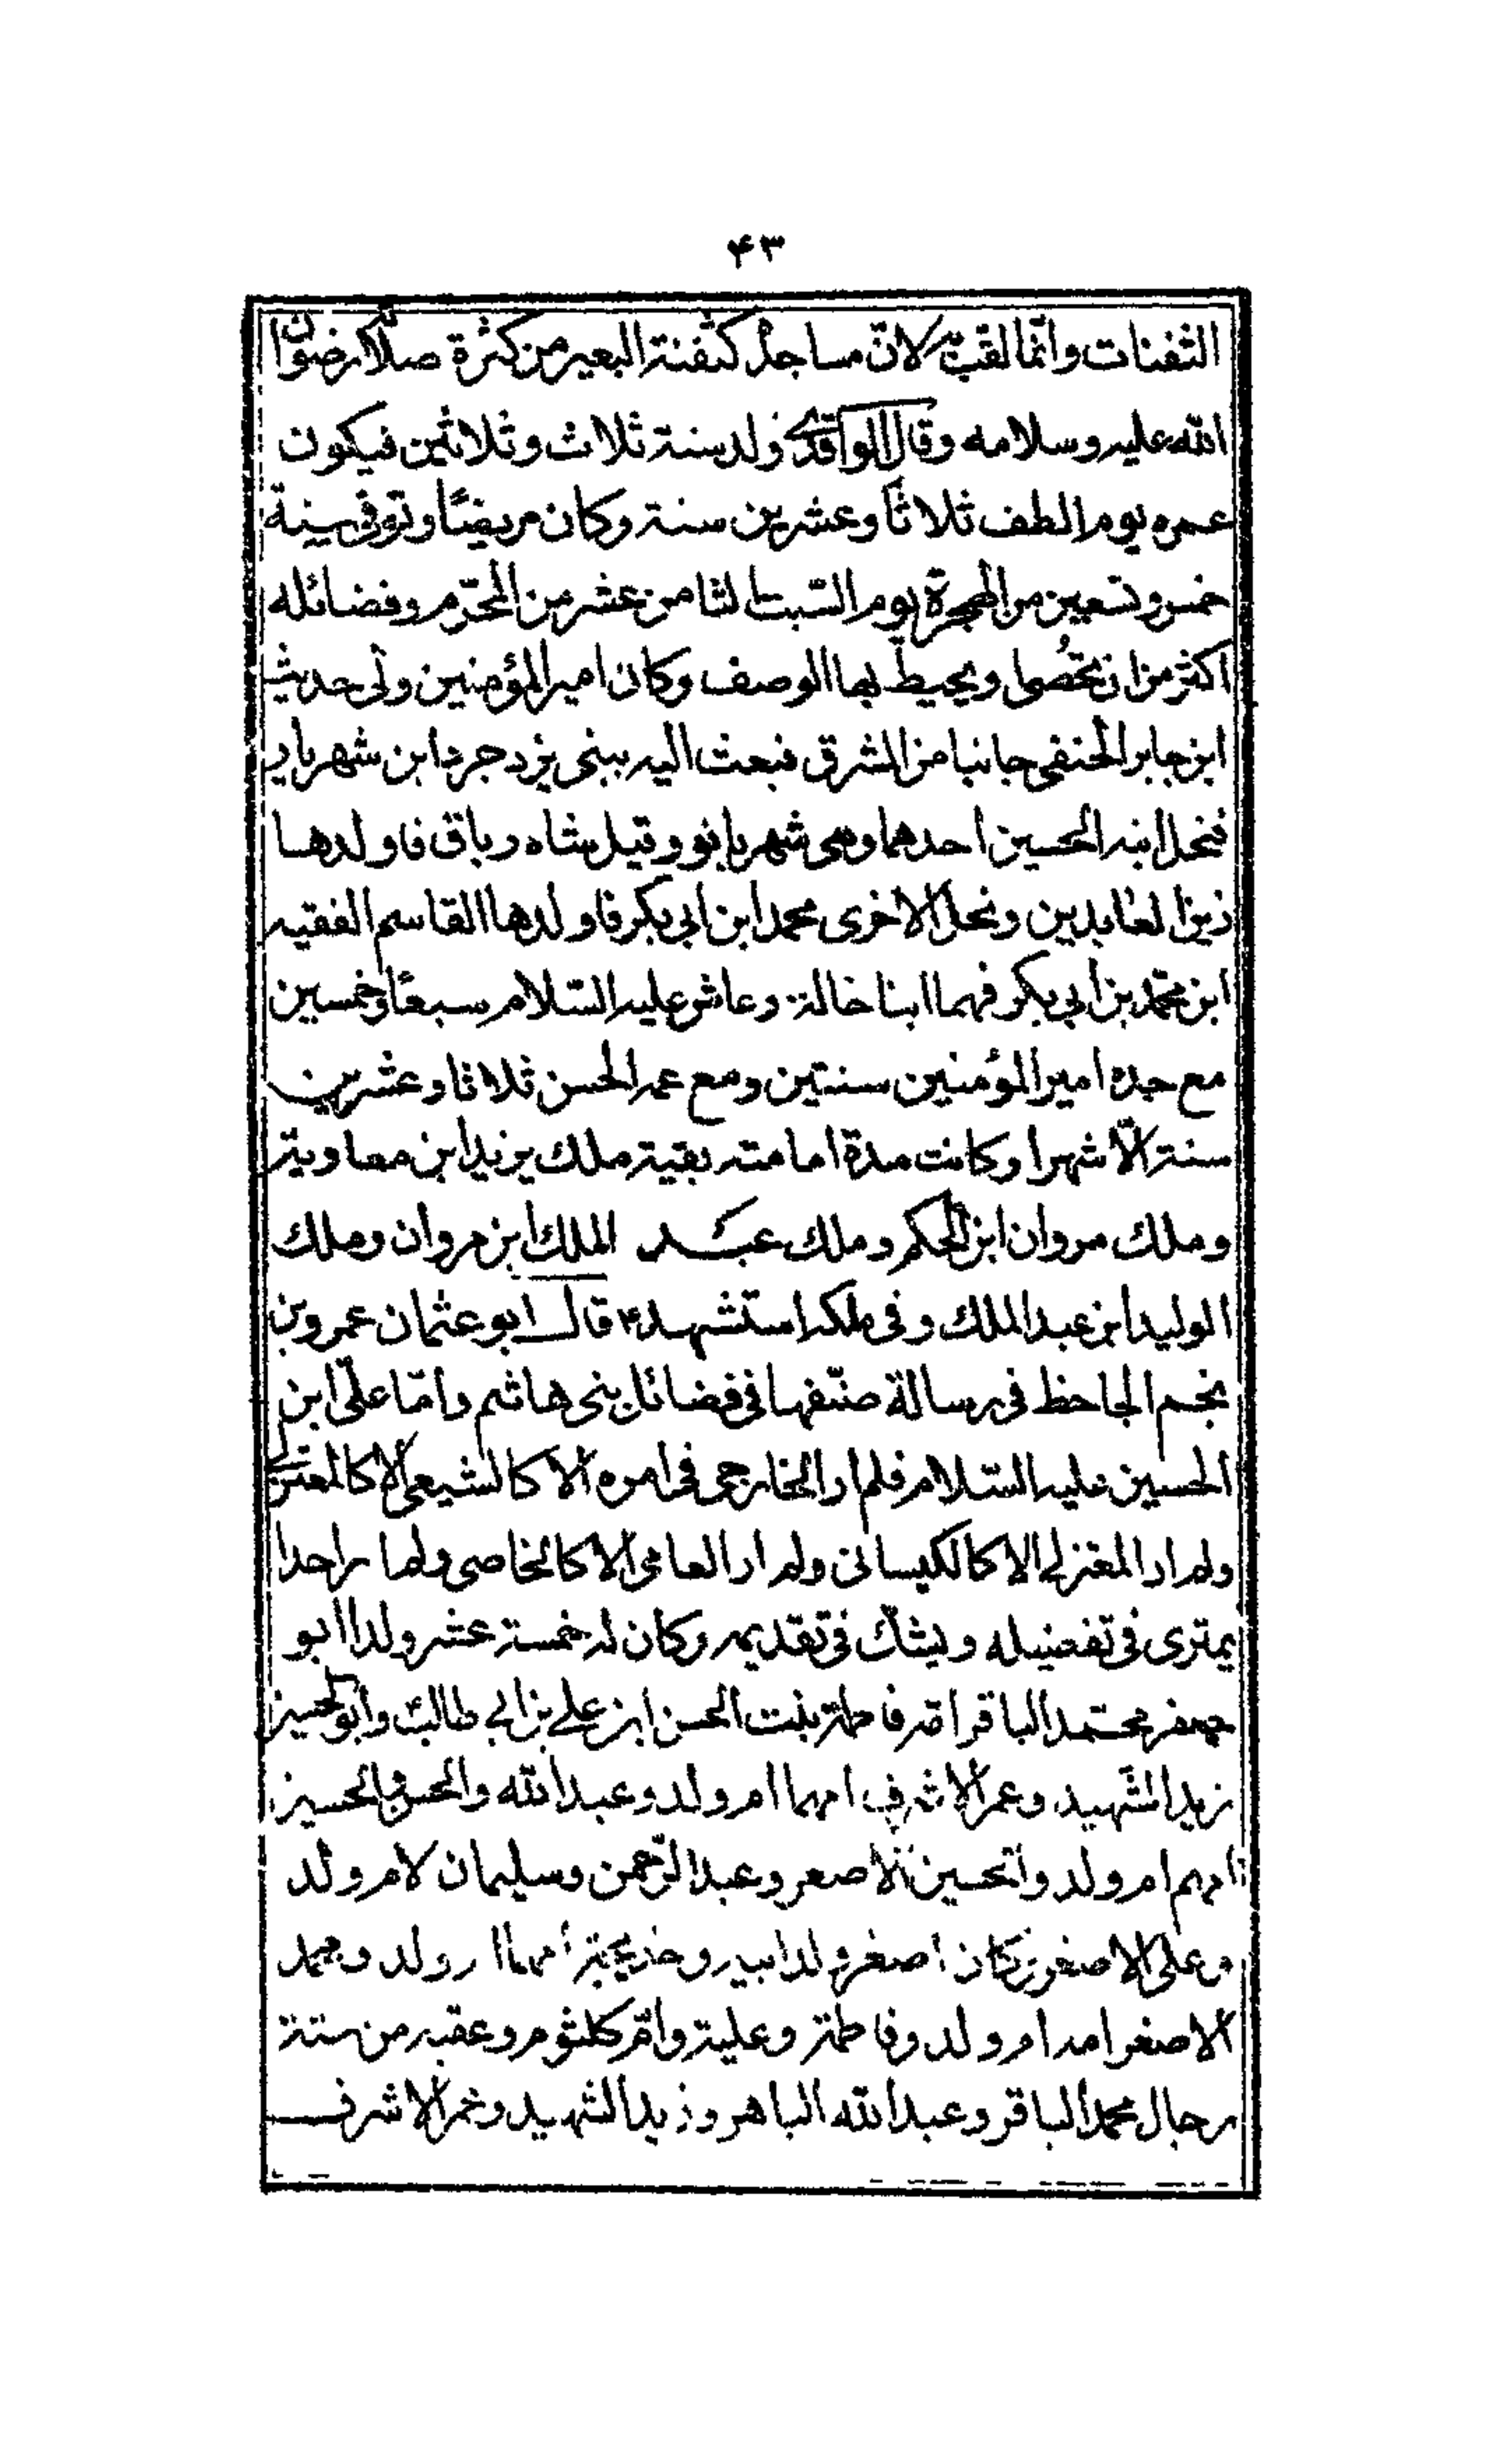 ۴۳
الثفنات وانّما لقّب به لانّ مساجده كثفنة البعير من كثرة صلاته رضوان
الله عليه وسلامه وقال الواقدي ولد سنة ثلاث وثلاثين فيكون
عمره يوم الطف ثلاثا وعشرين سنة وكان مريضًا وتوفى سنة
خمس وتسعين من الهجرة يوم السّبت الثامن عشر من المحرّم وفضائله
اكثر من ان تحصوا ويحيط بها الوصف وكان امير المؤمنين ولّى حديث
ابن جابر الحنفى جانبا من المشرق فبعث اليه ببنتى يزدجرد ابن شهريار
فنحل ابنه الحسين احدهما وهى شهربانو وقيل شاه زنان فاولدها
زين العابدين ونحل الاخرى محمد ابن ابى بكر فاولدها القاسم الفقيه
ابن محمّد بن ابى بكر فهما ابنا خالة وعاش عليه السّلام سبعًا وخمسين
مع جده امير المؤمنين سنتين ومع عمه الحسن ثلاثا وعشرين
سنة الّا شهرا وكانت مدة امامته بقية ملك يزيد ابن معاوية
وملك مروان ابن الحكم وملك عبد الملك ابن مروان وملك
الوليد ابن عبد الملك وفى ملكه استشهد قال ابو عثمان عمرو بن
نجم الجاحظ فى رسالة صنّفها فى فضائل بنى هاشم وامّا علىّ ابن
الحسين عليه السّلام فلم ار الخارجى فى امره الا كالشيعى الا كالمعتزلى
ولم ار المعتزلى الا كالكيسانى ولم ار العامى الا كالخاصى ولم ار احدا
يمترى فى تفضيله ويشكّ فى تقديمه وكان له خمسة عشر ولدا ابو
جعفر محمّد الباقر امّه فاطمة بنت الحسن ابن على بن ابى طالب وابو الحسين
زيد الشّهيد وعمر الاشرف امهما ام ولد وعبد الله والحسن والحسين
امهم ام ولد والحسين الاصغر وعبد الرّحمن وسليمان لام ولد
وعلى الاصغر وكان اصغر ولد ابيه وخديجة امهما ام ولد ومحمد
الاصغر امه ام ولد وفاطمة وعلية وامّ كلثوم وعقبه من ستة
رجال محمد الباقر وعبد الله الباهر وزيد الشهيد وعمر الاشرف